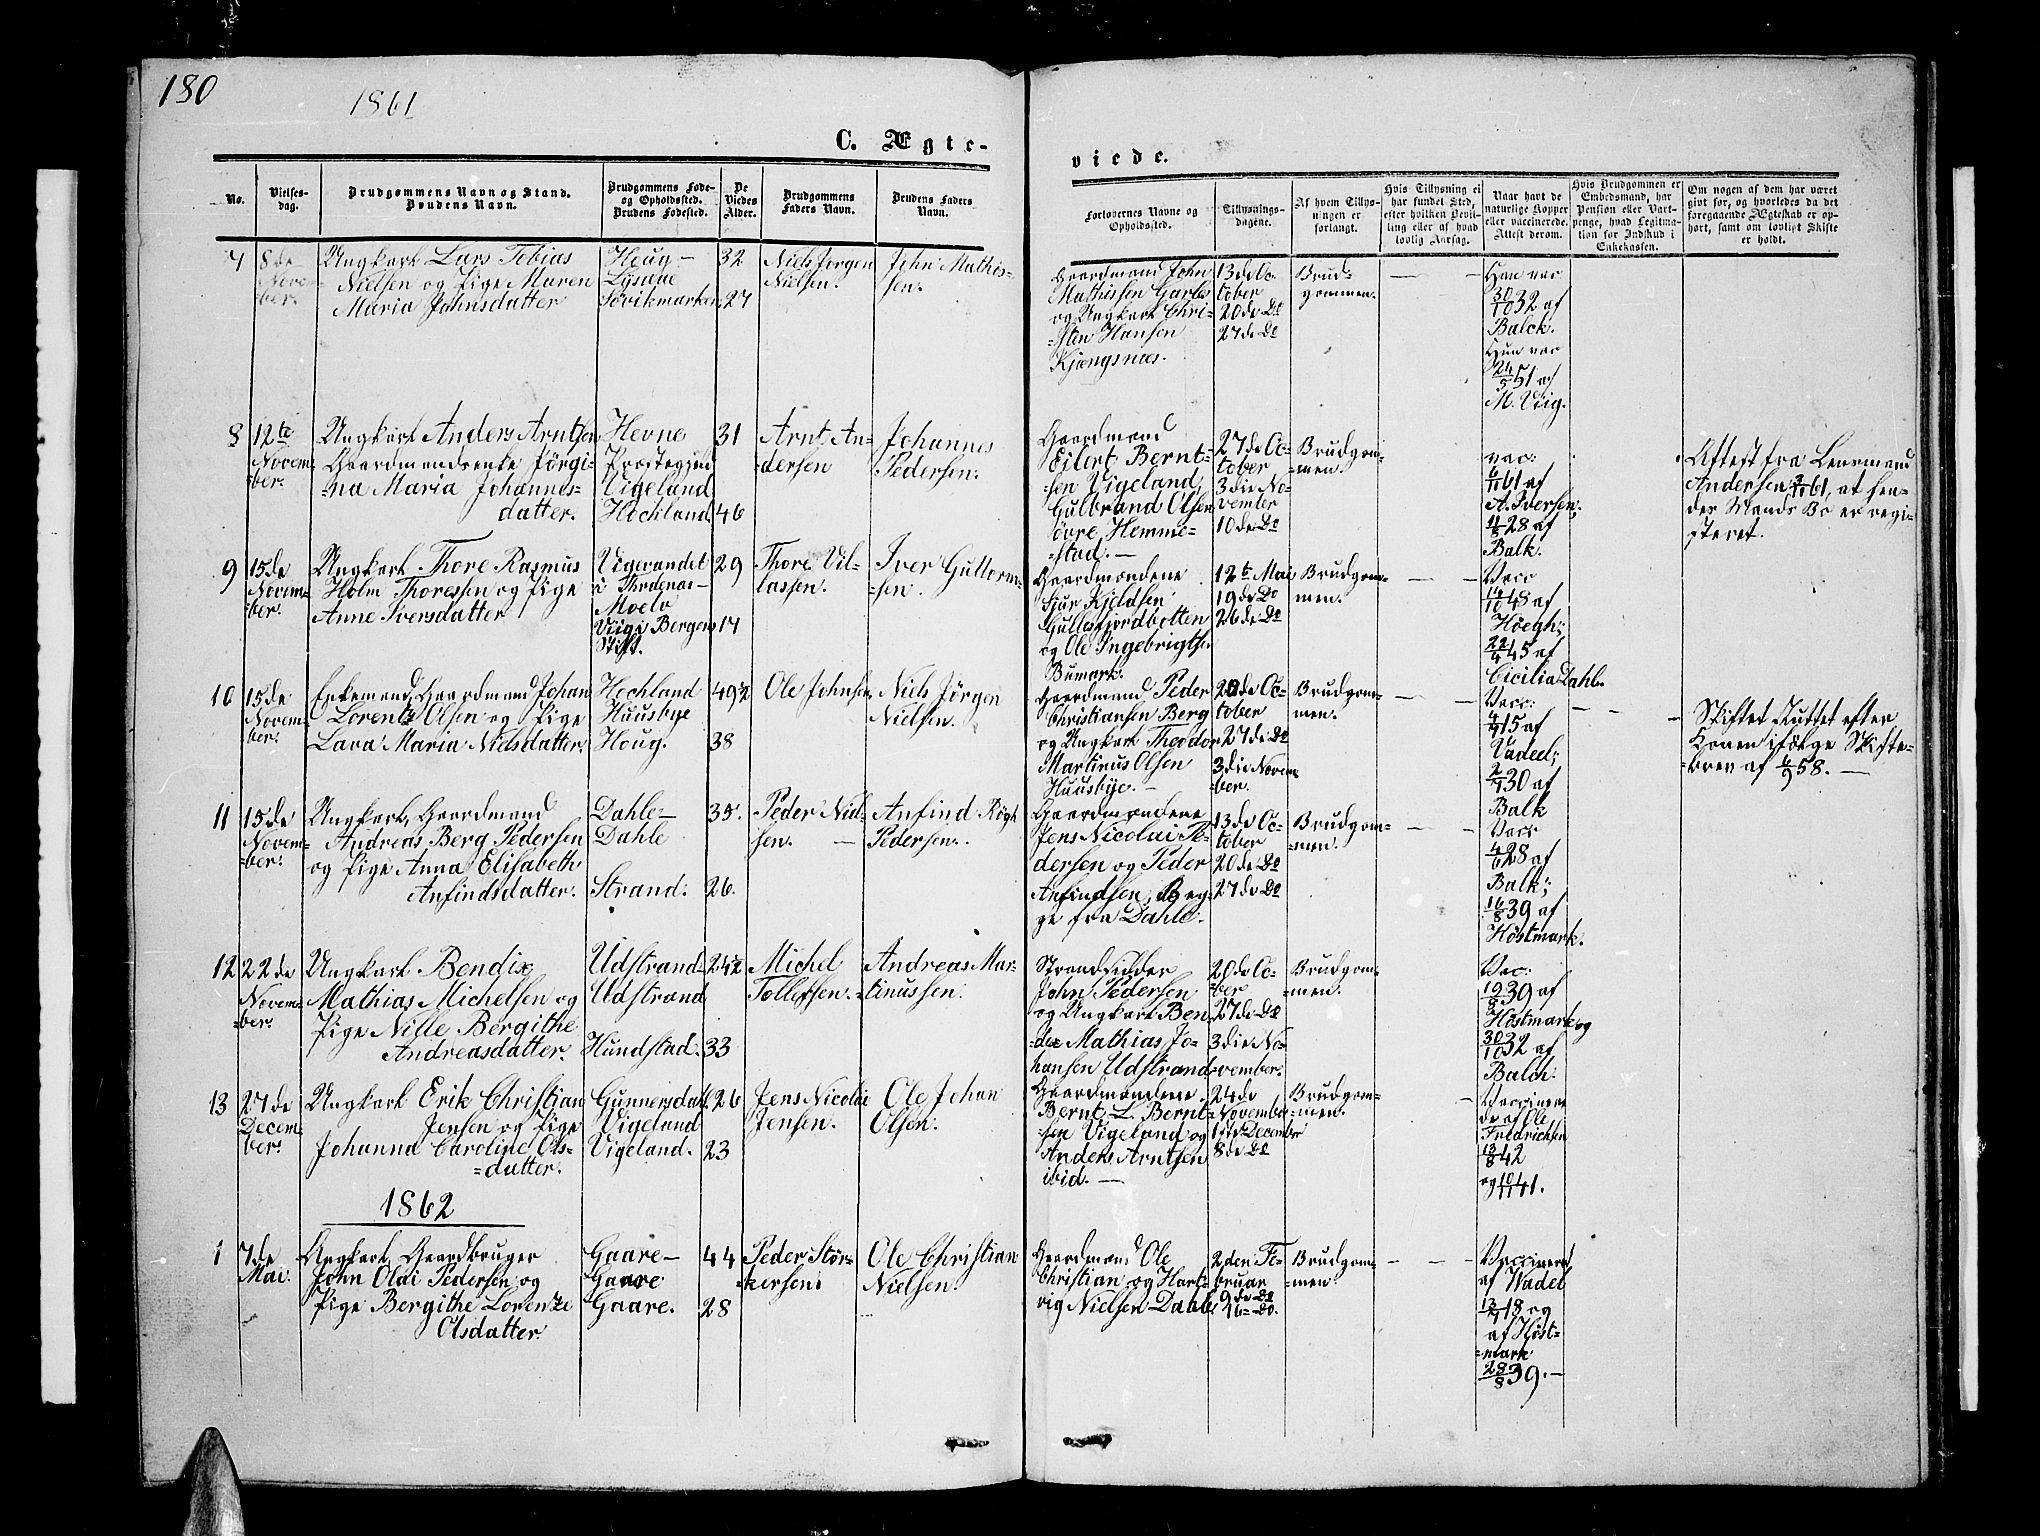 180
1861
C. Ægte-
viede.
No.
Vielses-
dag.
Brudgommens Navn og Stand.
Brudens Navn.
Brudgommens Føde-
og Opholdssted.
Brudens Fødested.
De
Viedes
Alder.
Brudgommens
Faders Navn.
Brudens Faders
Navn.
Forlovernes Navne og
Opholdssted.
Tillysnings-
dagene.
Af hvem Tillys-
ningen er
forlangt.
Hvis Tillysning ei
har fundet Sted,
efter hvilken Bevil-
ling eller af hvad
lovlig Aarsag.
Naar havt de
naturlige Kopper
eller vaccinerede.
Attest derom.
Hvis Brudgommen er
Embedsmand, har
Pension eller Vart-
penge, hvad Legitima-
tion for Indskud i
Enkekassen.
Om nogen af dem har været
gift før, og hvorledes da det
foregaaende Ægteskab er op-
hørt, samt om lovligt Skifte
er holdt.
7
8de
Novem-
ber.
Ungkarl Lars Tobias
Nielsen og Pige Maren
Maria Johnsdatter
Houg-
Lysøe
Tovikmarken
32
27
Niels Jørgen
Nielsen.
John Mathis-
sen.
Gaardmand John
Mathissen Garles
og Ungkarl Chri-
=sten Hansen
Kjøngsnæs.
13de Oc-
tober
20de Do
27de Do
Brud-
gommen.
Han vac
30/10 32 af
Balck.
Hun vac
24/5 51 af
M. Viig.
8
12te
Novem-
ber.
Ungkarl Anders Arntsen
Gaardmandsenke Jørgi-
=na Maria Johannes-
datter.
Hevne
Præstegjeld
Vigeland
Hochland
31
46
Arnt An-
=dersen
Johannes
Pedersen.
Gaardmand
Eilert Bernt-
sen Vigeland,
Gulbrand Olsen
Øvre Hemme-
=stad. —
27de Oc-
tober
3die No-
vember
10de Do
Brudgom-
=men.
vac:
6/11 61 af
A. Iversen;
11/8 28 af
Balk.
Attest fra Lensmand
Andersen 2/11 61, at hen-
des Mands Bo er regi-
steret.
9
15de
Novem-
ber.
Ungkarl Thore Rasmus
Holm Thoressen og Pige
Anne Iversdatter
Vigevandet
i Throenæs-
Moelv
Viig i Bergens
Stift.
29
17
Thore Vil-
lassen.
Iver Guttorm-
=sen.
Gaardmændene
Sjur Kjeldsen
Gullesfjordbotten
og Ole Ingebrigtsen
Bumark.
12te Mai
19de Do
26de Do
Brudgom-
men.
Vacc
14/10 48 af
Høegh;
22/4 45 af
Cicilia Dahl.
10
15de
Novem-
ber.
Enkemand, Gaardmand Johan
Lorents Olsen og Pige
Lava Maria Nielsdatter.
Hochland
Huusbye
Houg.
49½
38
Ole Johnsen
Niels Jörgen
Nielsen.
Gaardmand Peder
Christiansen Berg
og Ungkarl Theodor
Martinus Olsen
Huusbye. —
20de Oc-
tober
27de Do
3die Novem-
=ber.
Brudgom-
men.
Vacc:
4/7 15 af
Vadeel;
2/7 30 af
Balk
Skiftet sluttet efter
Konen ifølge Skifte-
=brev af 6/9 58. —
11
15de
Novem-
=ber.
Ungkarl, Gaardmand
Andreas Berg Pedersen
og Pige Anna Elisabeth
Anfindsdatter.
Dahle-
Dahle
Strand.
35.
26.
Peder Niel-
sen. —
Anfind Røgh
Pedersen.
Gaardmændene
Jens Nicolai Pe-
dersen og Peder
Anfindsen, Beg-
ge fra Dahle.
13de Oc-
tober
20de Do
27de Do
Brudgom-
=men.
Vacc
4/6 28 af
Balk;
16/8 39 af
Høstmark.
12
22de
Novem-
=ber.
Ungkarl Bendix
Mathias Michelsen og
Pige Nille Bergithe
Andreasdatter.
Udstrand-
Udstrand
Hundstad.
24½
33
Michel
Tollefsen.
Andreas Mar-
=tinussen.
Strandsidder
John Pedersen
og Ungkarl Ben-
dix Mathias Jo-
hansen Udstrand
20de Oc-
ber
27de Do
3die No-
vember.
Brudgom-
=men.
Vac:
19/8 39 af
Høstmark og
30/10 32 af
Balch.
13
27de
Decem-
ber.
Ungkarl Erik Christian
Jensen og Pige
Johanna Caroline Ols-
=datter.
Gunnersdahl.
Vigeland
Vigeland.
26
23
Jens Nicolai
Jensen.
Ole Johan
Olsen.
Gaardmændene
Bernt L. Bernt-
=sen Vigeland og
Anders Arntsen
ibid. —
24de
November
1ste December
8de Do
Brudgom-
=men.
Vaccinere-
de af Ole
Fredrichsen
13/8 42
og 10/11 41.
1862
1
7de
Mai.
Ungkarl, Gaardbruger
John Olai Pedersen og
Pige Bergithe Lorentze
Olsdatter.
Gaare-
Gaare
Gaare.
44
28
Peder Stør-
=kersen
Ole Christian
Nielsen.
Gaardmænd Ole
Christian og Hart-
vig Nielsen Dahle
2den Fe-
bruar
9de Do
16 = Do.
Brudgom-
=men.
Vaccineret
af Wadel
13/7 18 og
af Høst-
=mark
28/8 39. —